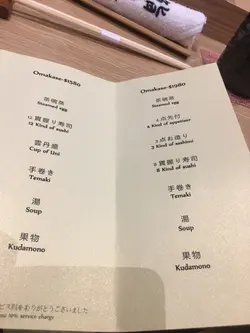 Omakase-$1980
茶碗蒸
Steamed egg
12 貫握り寿司
12 Kind of sushi
雲丹盛
Cup of Uni
手巻き
Temaki
湯
Soup
果物
Kudamono
ありがとうございました
10% service charge
Omakase-$1980
茶碗蒸
Steamed egg
4 点先付
4 Kind of appetizer
3 点お造り
3 Kind of sashimi
8 貫握り寿司
8 Kind of sushi
手巻き
Temaki
湯
Soup
果物
Kudamono